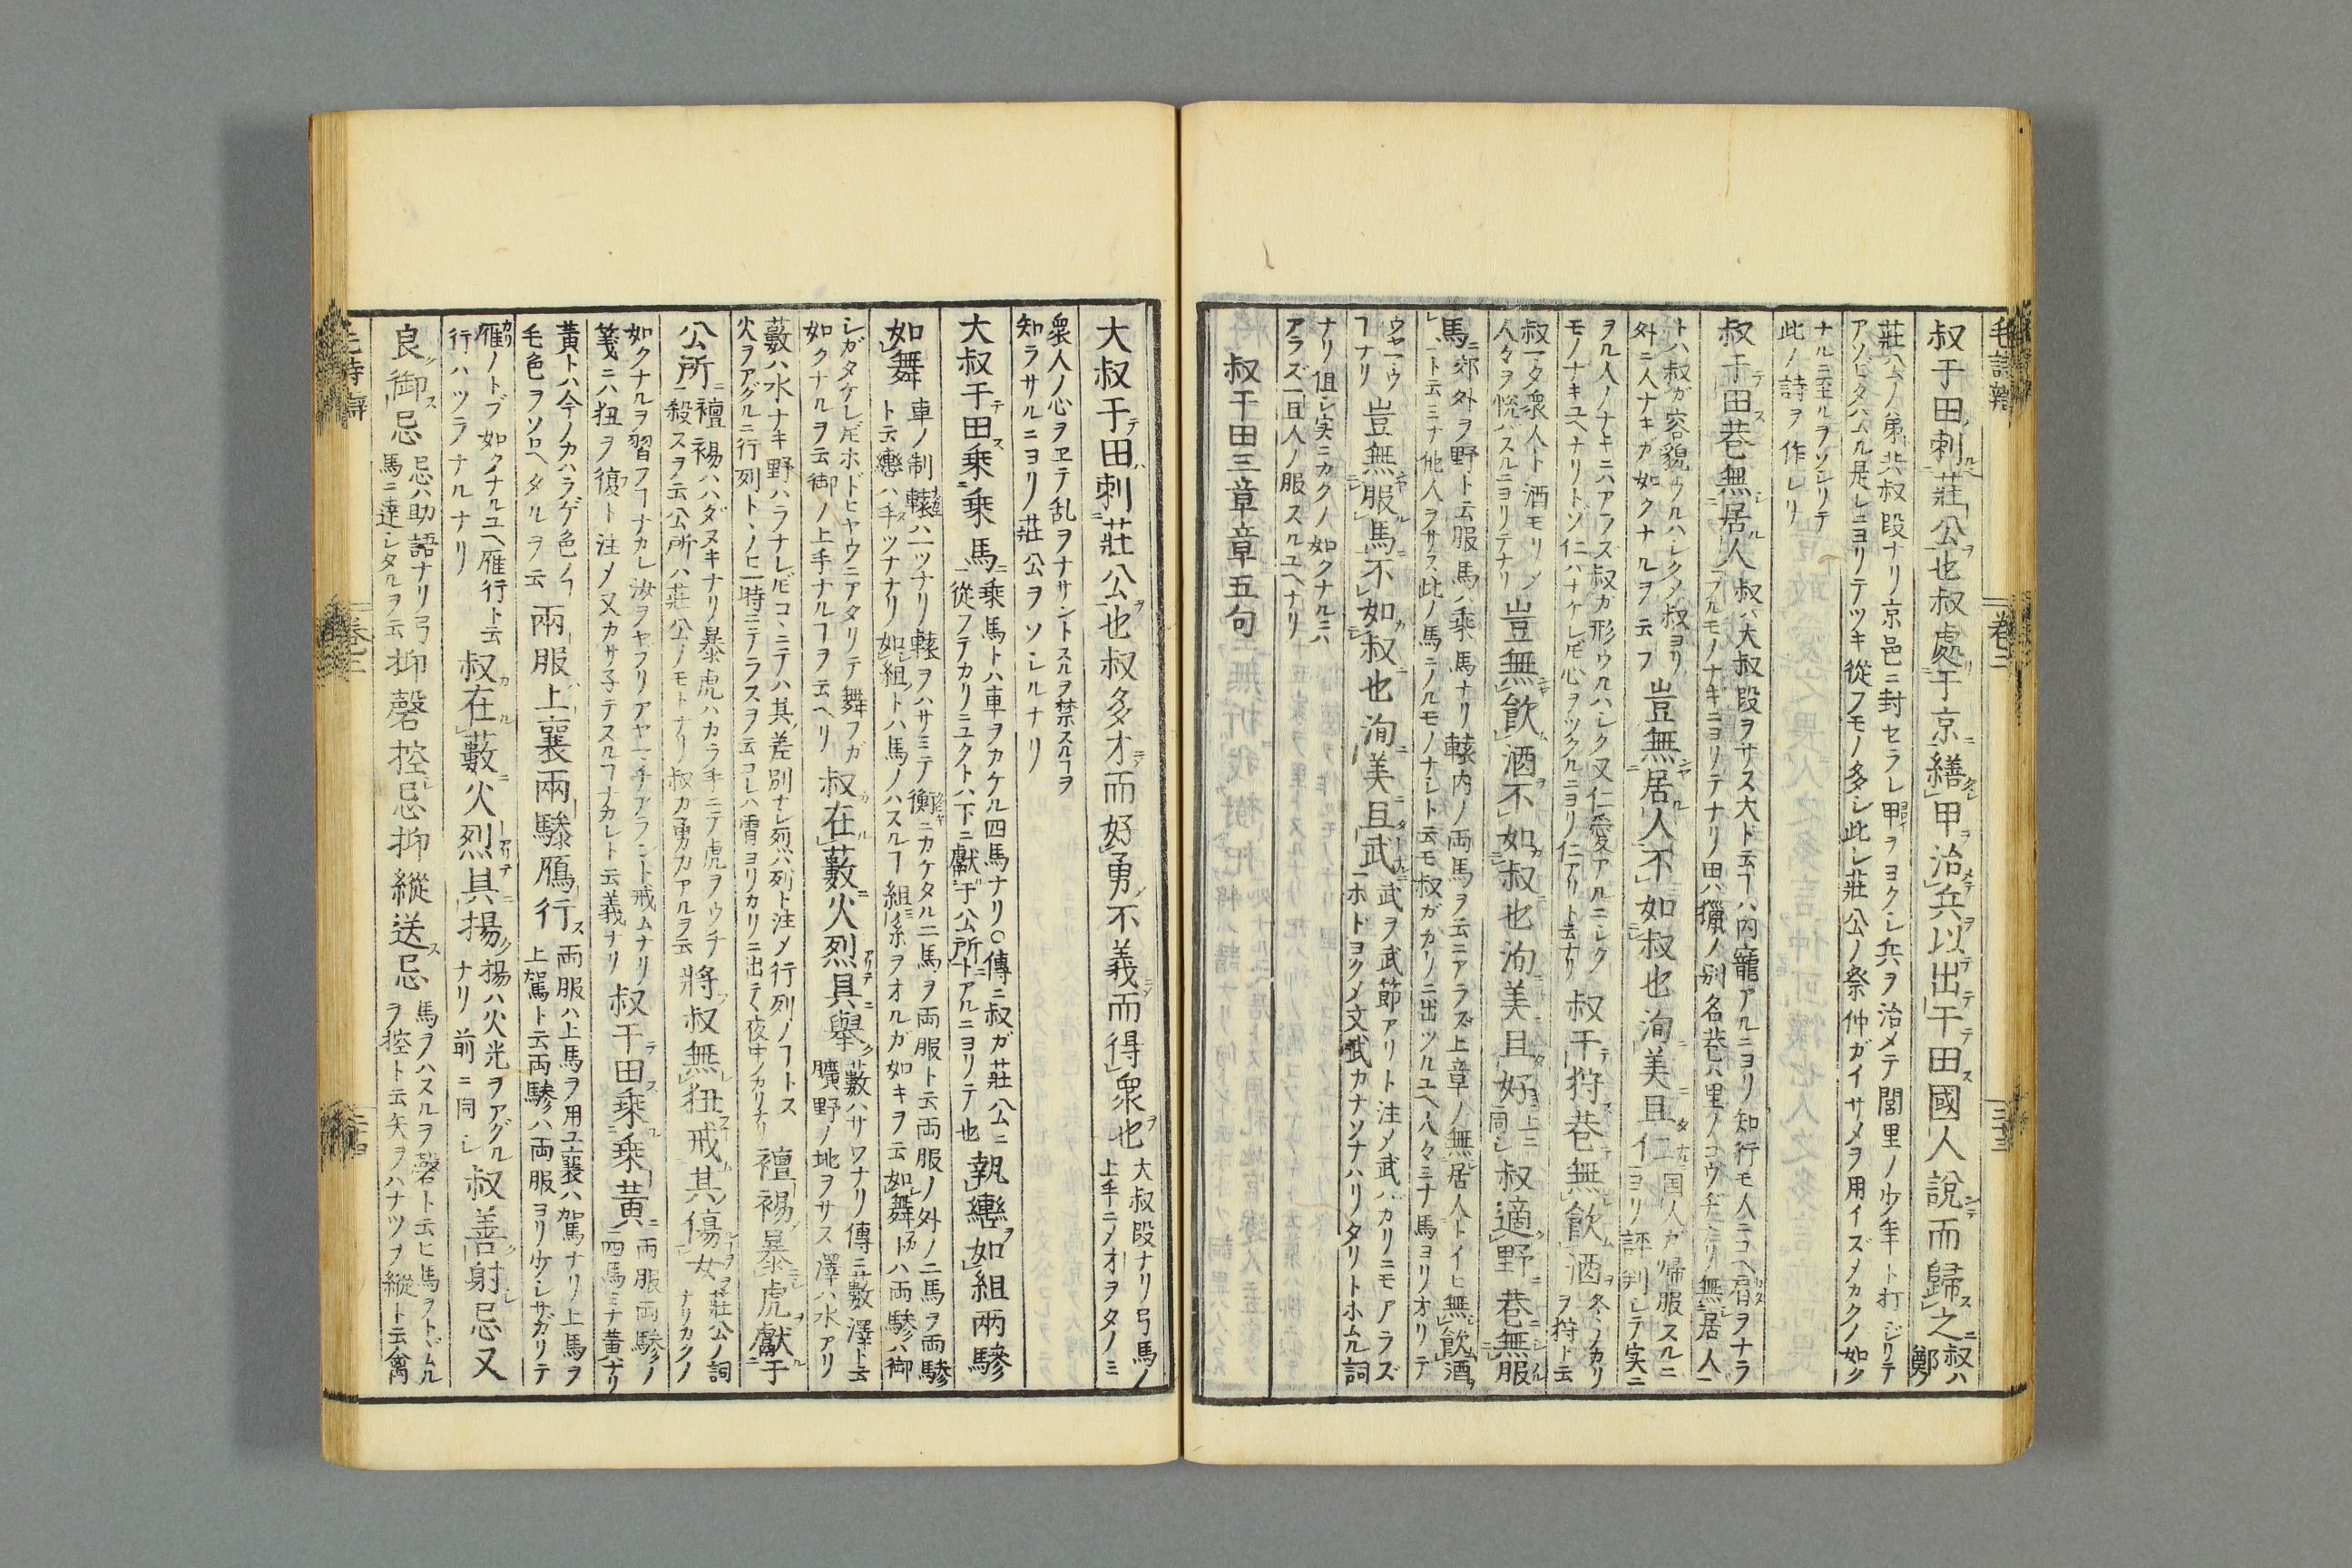 叔于田刺莊公也叔處于京繕甲治兵以出于田國人說而歸之 叔ハ鄭ノ
莊公ノ弟共叔段ナリ京邑ニ封セラレ甲ヲヨクシ兵ヲ治メテ閭里ノ少年ト打ジリテ
アソビタハムル是レニヨリテツキ從フモノ多シ此レ莊公ノ祭仲ガイサメヲ用イズメカクノ如ク
ナルニ至ルヲソシリテ
此ノ詩ヲ作レリ
叔于田巷無居人 叔ハ大叔段ヲサス大ト云フハ内寵アルニヨリ知行モ人ニコヘ
トハ叔ガ容貌
外ニ人ナキガ如クナルヲ云フ 豈無居人不如叔也洵美且仁 国人ガ帰服スルニ
ヲル人ノナキニハアラズ叔ガ形ウルハシク又仁愛アルニシク
モノナキユヘナリ 叔于狩巷無飲酒 冬ノカリ
ヲ狩ト云
叔一タ衆人ト酒モリメ
人々ヲ悦バスルニヨリテナリ 豈無飲酒不如叔也洵美且好 上ニ同シ 叔適野巷無服
馬 郊外ヲ野ト云服馬ハ乘馬ナリ轅内ノ両馬ヲ云ニアラズ上章ノ無居人トイヒ無飲酒
ト云ミナ他人ヲサス此ノ馬ニノルモノナシト云モ叔ガカリニ出ツルユヘ人々ミナ馬ヨリオリテ
豈無服馬不如叔也洵美且武 武ヲ武節アリト注メ武バカリニモアラズ
ホドヨクメ文武カナソナハリタリトホムル詞
ナリ但シ実ニカクノ如クナルニハ
アラズ一旦人ノ服スルユヘナリ
叔于田三章章五句
大叔于田刺莊公也叔多才而好勇不義而得衆也 大叔段ナリ弓馬ノ
上手ニメオヲタノミ
衆人ノ心ヲヱテ乱ヲナサントスルヲ禁スルヿヲ
知ラサルニヨリ莊公ヲソシルナリ
大叔于田乘乘馬 乘馬トハ車ヲカケル四馬ナリ○傳ニ叔ガ莊公ニ
從フテカリニユクトハ下ニ獻于公所トアルニヨリテ也 執轡如組兩驂
如舞 車ノ制轅ハ一ツナリ轅ヲハサミテ衡ニカケタル二馬ヲ両服ト云両服ノ外ノ二馬ヲ両驂
ト云轡ハ手ツナナリ如組トハ馬ノハスルヿ組糸ヲオルガ如キヲ云如舞トハ両驂ハ御
シガタケレ𪜈ホドヒヤウニアタリテ舞フガ
如クナルヲ云御ノ上手ナルヿヲ云ヘリ 叔在藪火烈具舉 藪ハサワナリ傳ニ藪澤ト云
曠野ノ地ヲサス澤ハ水アリ
藪ハ水ナキ野ハラナレ𪜈コヽニテハ其差別ナシ烈ハ列ト注メ行列ノヿトス
火ヲアグルニ行列トヽノヒ一時ニテラスヲ云コレハ霄ヨリカリニ出テ夜中ノカリナリ 襢裼暴虎獻于
公所 襢裼ハハダヌキナリ暴虎ハカラ手ニテ虎ヲウチ
殺スヲ云公所ハ莊公ノモトナリ叔ガ勇力アルヲ云 將叔無狃戒其傷女 莊公ノ詞
ナリカクノ
如クナルヲ習フヿナカレ汝ヲヤブリアヤマチアラント戒ムナリ
箋ニハ狃ヲ復ト注メ又カサ子テスルヿナカレト云義ナリ 叔于田乘乘黃 両服両驂ノ
四馬ミナ黃ナリ
黃トハ今ノカハラゲ色ノ
毛色ヲソロヘタルヲ云 兩服上襄兩驂鴈行 両服ハ上馬ヲ用ユ襄ハ駕ナリ上馬ヲ
上駕ト云両驂ハ両服ヨリ少シサガリテ
雁ノトブ如クナルユヘ雁行ト云
行ハツラナルナリ 叔在藪火烈具揚 揚ハ火光ヲアグル
ナリ前ニ同シ 叔善射忌又
良御忌 忌ハ助語ナリ弓
馬ニ達シタルヲ云 抑磬控忌抑縱送忌 馬ヲハスルヲ磬ト云ヒ馬ヲトヾムル
ヲ控ト云矢ヲハナツヲ縱ト云禽